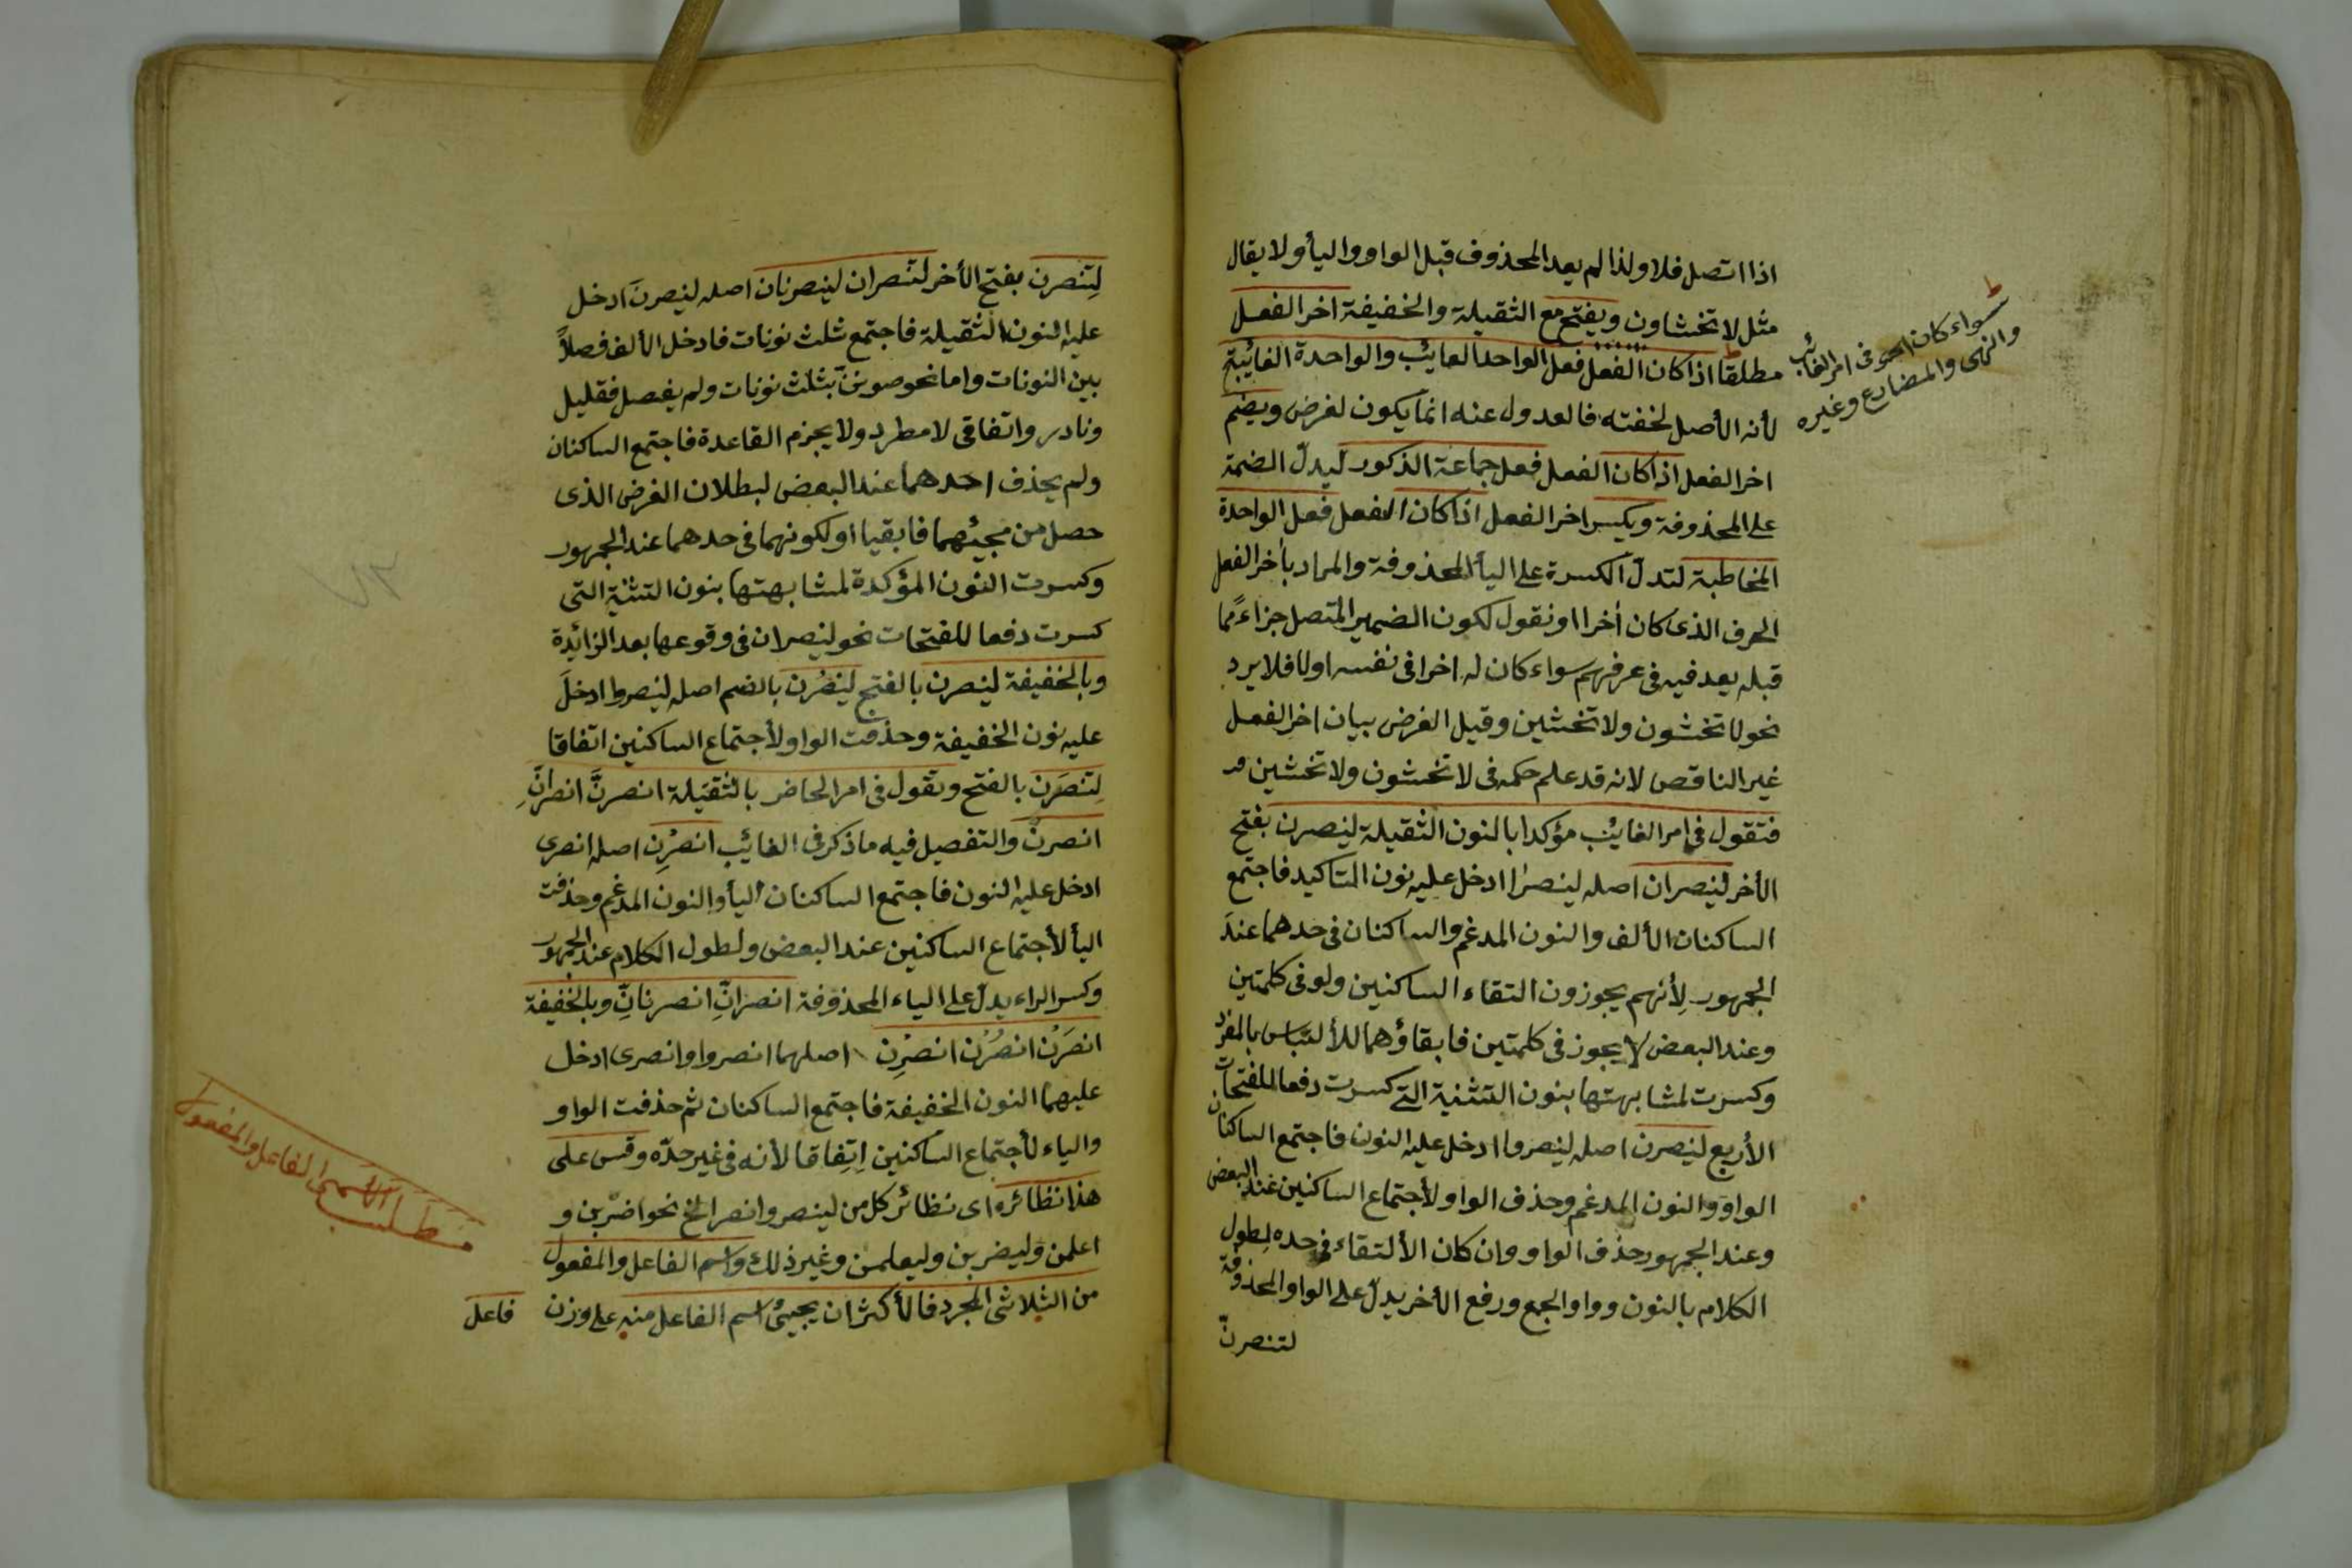 اذا اتصل فلا ولذا لم يعد المحذوف قبل الواو واليأ ولا يقال
مثل لا تخشاون ويفتح مع الثقيلة والخفيفة اخر الفعل
مطلقا اذا كان الفعل فعل الواحد الغايئب والواحدة الغايئبة
لأنه الأصل لخفته فالعدول عنه انما يكون لغرض ويضم
اخر الفعل اذا كان الفعل فعل جماعة الذكور ليدلّ الضمة
على المحذوفة ويكسر اخر الفعل اذا كان الفعل فعل الواحدة
المخاطبة لتدلّ الكسرة على اليأ المحذوفة والمراد بأخر الفعل
الحرف الذى كان أخرا او نقول لكون الضمير المتصل جزاءً مما
قبله يعد فيه فى عرفهم سواء كان له اخرا فى نفسه اولا فلا يرد
نحو لا تخشون ولا تخشين وقيل الغرض بيان اخر الفعل
غير الناقص لانه قد علم حكمه فى لا تخشون ولا تخشين
فتقول فى امر الغايئب مؤكدا بالنون الثقيلة لينصرن بفتح
الأخر لينصران اصله لينصرا ادخل عليه نون التاكيد فاجتمع
الساكنان الألف والنون المدغم والساكنان فى حدهما عند
الجمهور لأنهم يجوزون التقاء الساكنين ولو فى كلمتين
وعند البعض لا يجوز فى كلمتين فابقاؤهما للألتباس بالمفرد
وكسرت لمشابهتها بنون التثنية التى كسرت دفعا للفتحات
الأربع لينصرن اصله لينصروا ادخل عليه النون فاجتمع الساكنان
الواو والنون المدغم وحذف الواو لأجتماع الساكنين عند البعض
وعند الجمهور حذف الواو وان كان الألتقاء فى حده لطول
الكلام بالنون وواو الجمع ورفع الأخر يدلّ على الواو المحذوفة
لتنصرنّ
سواء كان اخر فى امر الغائب
والنهى والمضارع وغيره
لِتنصرن بفتح الأخر لتنصران لينصرنان اصله لينصرنَ ادخل
عليه النون الثقيلة فاجتمع ثلث نونات فادخل الألف فصلاً
بين النونات واما نحو صوننّ بثلث نونات ولم يفصل فقليل
ونادر واتفاقى لا مطرد ولا يجزم القاعدة فاجتمع الساكنان
ولم يحذف احدهما عند البعض لبطلان الغرض الذى
حصل من مجيئهما فابقيا او لكونهما فى حدهما عند الجمهور
وكسرت النون المؤكدة لمشابهتها بنون التثنية التى
كسرت دفعا للفتحات نحو لينصران فى وقوعها بعد الزايئدة
وبالخفيفة لينصرن بالفتح لينصُرن بالضم اصله لينصروا ادخلَ
عليه نون الخفيفة وحذفت الواو لأجتماع الساكنين اتفاقا
لِتنصَرَن بالفتح وتقول فى امر الحاضر بالثقيلة انصرنَّ انصرانِّ
انصرنّ والتفصيل فيه ما ذكر فى الغايئب انصُرِن اصله انصرى
ادخل عليه النون فاجتمع الساكنان اليأ والنون المدغم وحذفت
اليأ لأجتماع الساكنين عند البعض ولطول الكلام عند الجمهور
وكسر الراء يدلّ على الياء المحذوفة انصرانِّ انصرنانِّ وبالخفيفة
انصَرَن انصُرُن انصُرِن اصلهما انصروا وانصرى ادخل
عليهما النون الخفيفة فاجتمع الساكنان ثم حذفت الواو
والياء لأجتماع الساكنين اتِفاقا لأنه فى غير حدّه وقس على
هذا نظائره اى نظائر كل من لينصر وانصر الخ نحو اضربن و
اعلمن وليضربن وليعلمن وغير ذلك واسم الفاعل والمفعول
من الثلاثى المجرد فالأكثر ان يجيئ اسم الفاعل منه على وزن
فاعل
مطلب الاسمى الفاعل والمفعول